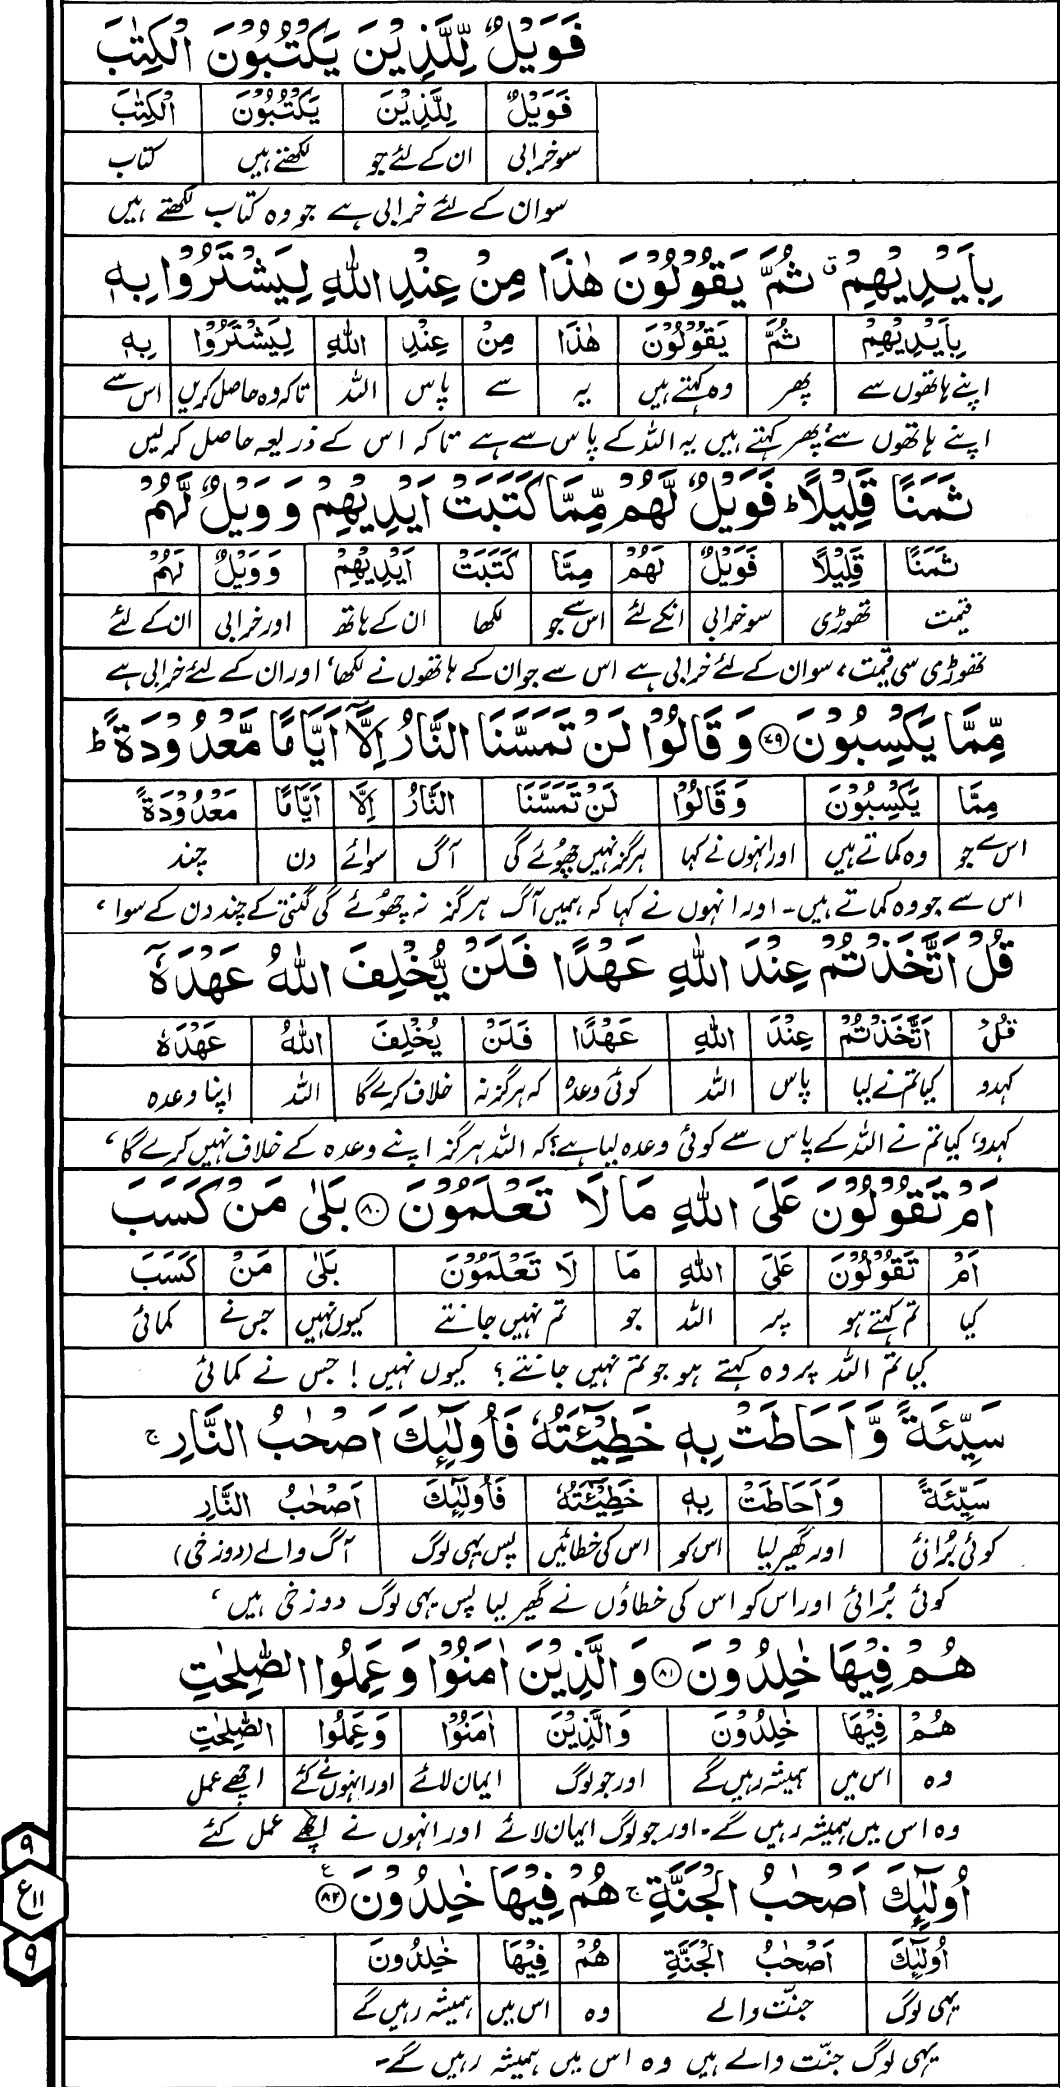 فَوَيْلٌ لِّلَّذِيْنَ يَكْتُبُوْنَ الْكِتٰبَ
فَوَيْلٌ لِلَّذِيْنَ يَكْتُبُوْنَ الْكِتٰبَ
سو خرابی ان کے لئے جو لکھتے ہیں کتاب
سو ان کے لئے خرابی ہے جو وہ کتاب لکھتے ہیں
بِاَيْدِيْهِمْ ۗ ثُمَّ يَقُوْلُوْنَ هٰذَا مِنْ عِنْدِ اللّٰهِ لِيَشْتَرُوْا بِهٖ
بِاَيْدِيْهِمْ ثُمَّ يَقُوْلُوْنَ هٰذَا مِنْ عِنْدِ اللّٰهِ لِيَشْتَرُوْا بِهٖ
اپنے ہاتھوں سے پھر وہ کہتے ہیں یہ سے پاس اللہ تاکہ وہ حاصل کریں اس سے
اپنے ہاتھوں سے، پھر کہتے ہیں یہ اللہ کے پاس سے ہے تاکہ اس کے ذریعہ حاصل کرلیں
ثَمَنًا قَلِيْلًا ؕ فَوَيْلٌ لَّهُمْ مِّمَّا كَتَبَتْ اَيْدِيْهِمْ وَ وَيْلٌ لَّهُمْ
ثَمَنًا قَلِيْلًا فَوَيْلٌ لَهُمْ مِمَّا كَتَبَتْ اَيْدِيْهِمْ وَ وَيْلٌ لَهُمْ
قیمت تھوڑی سو خرابی انکے لئے اس سے جو لکھا ان کے ہاتھ اور خرابی ان کے لئے
تھوڑی سی قیمت، سو ان کے لئے خرابی ہے اس سے جو ان کے ہاتھوں نے لکھا، اور ان کے لئے خرابی ہے
مِّمَّا يَكْسِبُوْنَ ۝۷۹ وَ قَالُوْا لَنْ تَمَسَّنَا النَّارُ اِلَّاۤ اَيَّامًا مَّعْدُوْدَةً ؕ
مِمَّا يَكْسِبُوْنَ وَ قَالُوْا لَنْ تَمَسَّنَا النَّارُ اِلَّا اَيَّامًا مَعْدُوْدَةً
اس سے جو وہ کماتے ہیں اور انہوں نے کہا ہرگز نہیں چھوئے گی آگ سوائے دن چند
اس سے جو وہ کماتے ہیں۔ اور انہوں نے کہا کہ ہمیں آگ ہرگز نہ چھوئے گی گنتی کے چند دن کے سوا،
قُلْ اَتَّخَذْتُمْ عِنْدَ اللّٰهِ عَهْدًا فَلَنْ يُّخْلِفَ اللّٰهُ عَهْدَهٗۤ
قُلْ اَتَّخَذْتُمْ عِنْدَ اللّٰهِ عَهْدًا فَلَنْ يُخْلِفَ اللّٰهُ عَهْدَهٗ
کہدو کیا تم نے لیا پاس اللہ کوئی وعدہ کہ ہرگز نہ خلاف کرے گا اللہ اپنا وعدہ
کہدو، کیا تم نے اللہ کے پاس سے کوئی وعدہ لیا ہے؟ کہ اللہ ہرگز اپنے وعدہ کے خلاف نہیں کرے گا،
اَمْ تَقُوْلُوْنَ عَلَى اللّٰهِ مَا لَا تَعْلَمُوْنَ ۝۸۰ بَلٰى مَنْ كَسَبَ
اَمْ تَقُوْلُوْنَ عَلَى اللّٰهِ مَا لَا تَعْلَمُوْنَ بَلٰى مَنْ كَسَبَ
کیا تم کہتے ہو پر اللہ جو تم نہیں جانتے کیوں نہیں جس نے کمائی
کیا تم اللہ پر وہ کہتے ہو جو تم نہیں جانتے؟ کیوں نہیں! جس نے کمائی
سَيِّئَةً وَّ اَحَاطَتْ بِهٖ خَطِيْٓـَٔتُهٗ فَاُولٰٓئِكَ اَصْحٰبُ النَّارِ ۚ
سَيِّئَةً وَ اَحَاطَتْ بِهٖ خَطِيْٓـَٔتُهٗ فَاُولٰٓئِكَ اَصْحٰبُ النَّارِ
کوئی بُرائی اور گھیر لیا اس کو اس کی خطائیں پس یہی لوگ آگ والے (دوزخی)
کوئی بُرائی اور اس کو اس کی خطاؤں نے گھیر لیا پس یہی لوگ دوزخی ہیں،
هُمْ فِيْهَا خٰلِدُوْنَ ۝۸۱ وَ الَّذِيْنَ اٰمَنُوْا وَ عَمِلُوا الصّٰلِحٰتِ
هُمْ فِيْهَا خٰلِدُوْنَ وَالَّذِيْنَ اٰمَنُوْا وَعَمِلُوا الصّٰلِحٰتِ
وہ اس میں ہمیشہ رہیں گے اور جو لوگ ایمان لائے اور انہوں نے کئے اچھے عمل
وہ اس میں ہمیشہ رہیں گے۔ اور جو لوگ ایمان لائے اور انہوں نے اچھے عمل کئے
اُولٰٓئِكَ اَصْحٰبُ الْجَنَّةِ ۚ هُمْ فِيْهَا خٰلِدُوْنَ ۝۸۲ ع
اُولٰٓئِكَ اَصْحٰبُ الْجَنَّةِ هُمْ فِيْهَا خٰلِدُوْنَ
یہی لوگ جنّت والے وہ اس میں ہمیشہ رہیں گے
یہی لوگ جنّت والے ہیں وہ اس میں ہمیشہ رہیں گے۔
۹
ع۱۱
۹